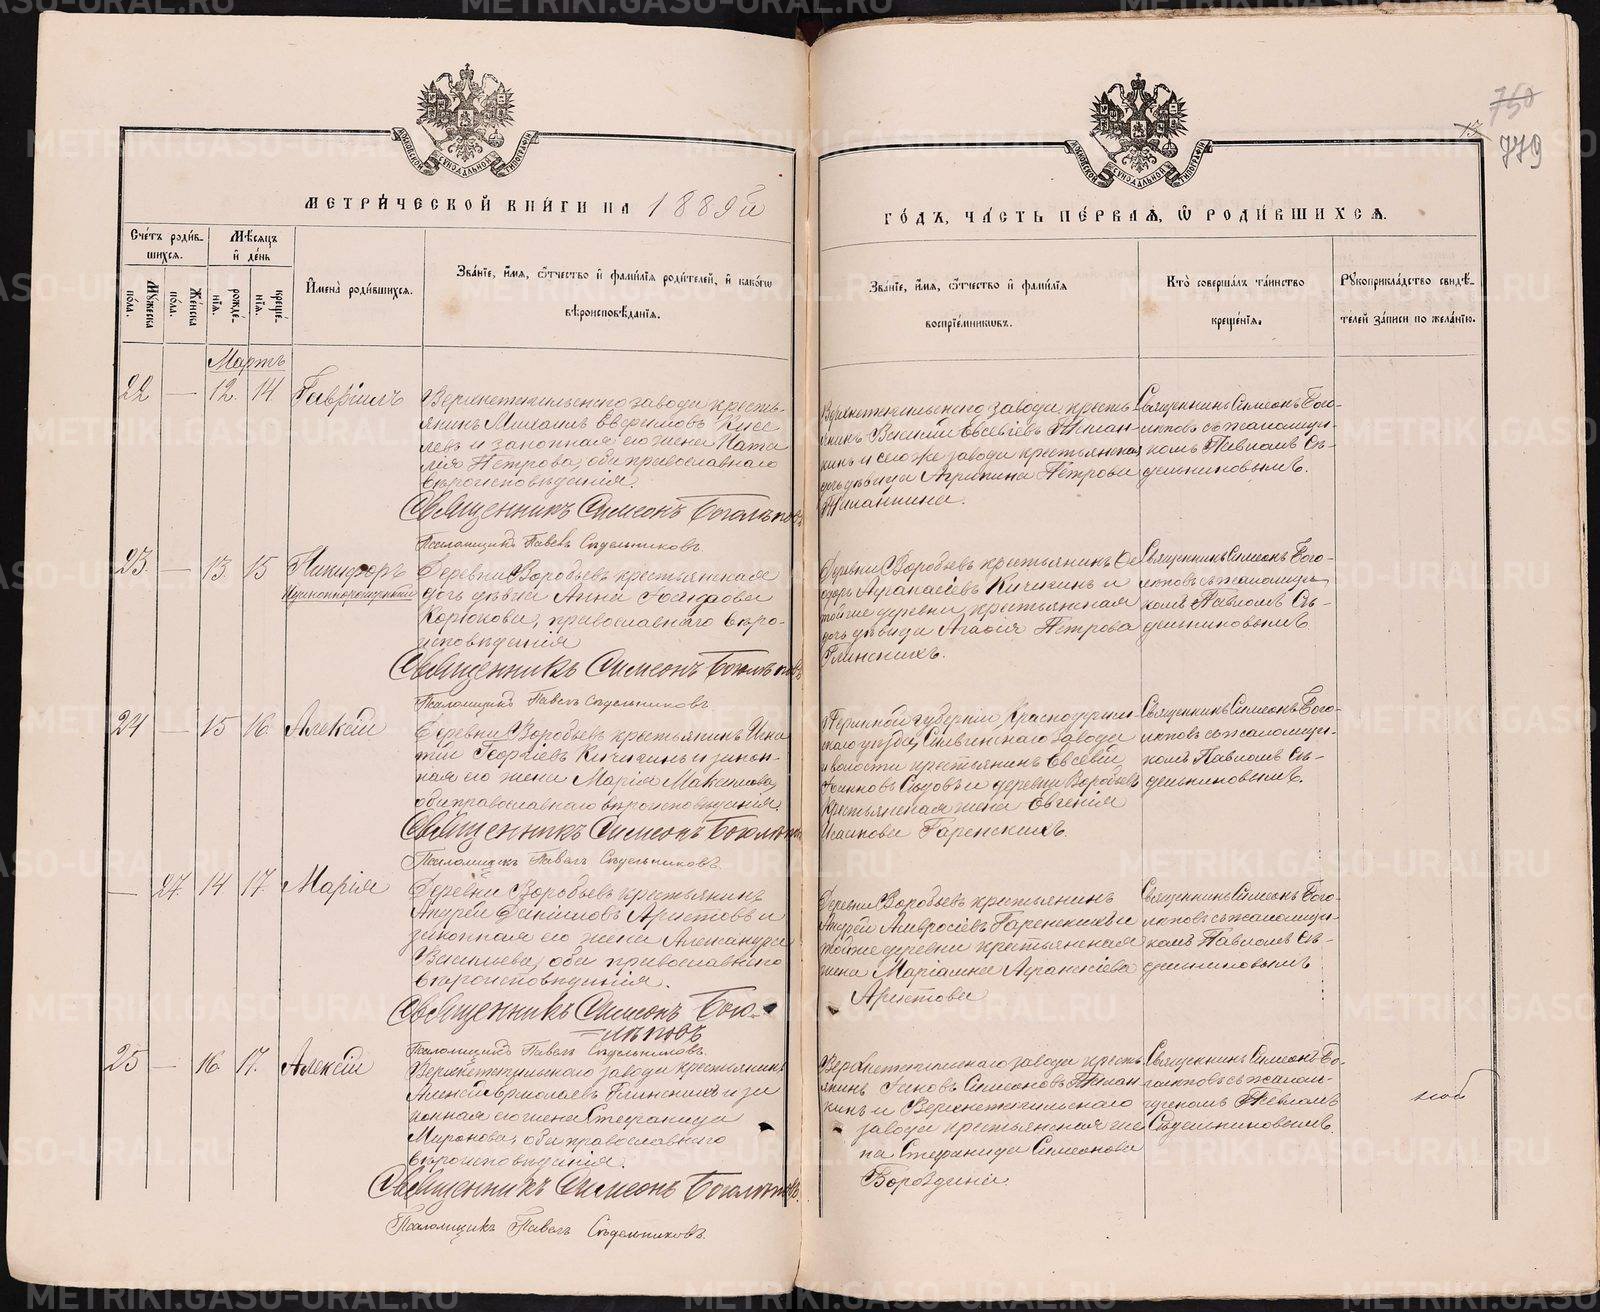 МЕТРИЧЕСКОЙ КНИГИ НА 1889й
ГОДЪ, ЧАСТЬ ПЕРВАЯ, Ѡ РОДИВШИХСЯ.
750
779
Счётъ родившихся.
Мѣсяцъ и день
Имена родившихся.
Званіе, имя, отчество и фамилія родителей, и какогѡ
вѣроисповѣданія.
Мужеска пола.
Женска пола.
рожденія.
крещенія.
Званіе, имя, отчество и фамилія
воспріемниковъ.
Кто совершалъ таинство
крещенія.
Рукоприкладство свидѣ-
телей записи по желанію.
Мартъ
22 — 12. 14 Гавріилъ
Верхнетагильскаго завода кресть-
янинъ Михаилъ Евфимовъ Кисе
левъ и законная его жена Ната
лія Петрова, оба православнаго
вѣроисповѣданія.
Священникъ Симеонъ Боголѣповъ
Псаломщикъ Павелъ Сѣдельниковъ.
Верхнетагильскаго завода кресть
янинъ Василій Евсевіевъ
и сего же завода крестьянская
дочь дѣвица Агрипина Петрова
Священникъ Симеонъ Бого-
лѣповъ съ псаломщи-
комъ Павломъ Сѣ-
дельниковымъ.
23 — 13. 15 Никифоръ
Незаконнорожденный
Деревни Воробьевъ крестьянская
дочь дѣвка Анна
Корюкова, православнаго вѣро-
исповѣданія
Священникъ Симеонъ Боголѣповъ
Псаломщикъ Павелъ Сѣдельниковъ.
Деревни Воробьевъ крестьянинъ Ѳе
одоръ Аѳанасіевъ Кичигинъ и
той же деревни крестьянская
дочь дѣвица Агафія Петрова
Глинскихъ.
Священникъ Симеонъ Бого-
лѣповъ съ псаломщи-
комъ Павломъ Сѣ-
дельниковымъ
24 — 15 16 Алексій
Деревни Воробьевъ крестьянинъ Игна
тій Георгіевъ Кичигинъ и закон-
ная его жена Марія Максимова,
оба православнаго вѣроисповѣданія.
Священникъ Симеонъ Боголѣповъ
Псаломщикъ Павелъ Сѣдельниковъ.
Пермской губерніи, Красноуфим-
скаго уѣзда, Сылвинскаго завода
и волости крестьянинъ Евсевій
и деревни Воробьевъ
крестьянская жена Евгенія
Исакова Гаренскихъ.
Священникъ Симеонъ Бого-
лѣповъ съ псаломщи-
комъ Павломъ Сѣ-
дельниковымъ.
— 27. 14 17. Марія
Деревни Воробьевъ крестьянинъ
Андрей Даниловъ Аристовъ и
законная его жена Александра
Васильева, оба православнаго
вѣроисповѣданія.
Священникъ Симеонъ Бого-
лѣповъ
Псаломщикъ Павелъ Сѣдельниковъ.
Деревни Воробьевъ крестьянинъ
Андрей Амвросіевъ Гаренскихъ и
той же деревни крестьянская
жена Маріамна Аѳанасіева
Аристова
Священникъ Симеонъ Бого-
лѣповъ съ псаломщи-
комъ Павломъ Сѣ-
дельниковымъ
25 — 16. 17. Алексій
Верхнетагильскаго завода крестьянинъ
Алексій Ермолаевъ Глинскихъ и за
конная его жена Стефанида
Миронова, оба православнаго
вѣроисповѣданія.
Священникъ Симеонъ Боголѣповъ.
Псаломщикъ Павелъ Сѣдельниковъ.
Верхнетагильскаго завода кресть
янинъ Яковъ Симеоновъ
и Верхнетагильскаго
завода крестьянская же
на Стефанида Симеонова
Бороздина.
Священникъ Симеонъ Бо-
голѣповъ съ псалом-
щикомъ Павломъ
Сѣдельниковымъ.